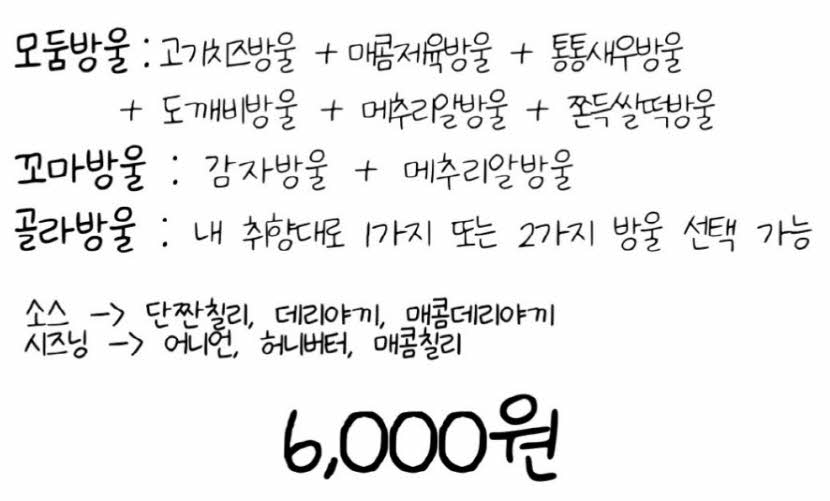 모둠방울 : 고기치즈방울 + 매콤제육방울 + 통통새우방울
+ 도깨비방울 + 메추리알방울 + 쫀득쌀떡방울
꼬마방울 : 감자방울 + 메추리알방울
골라방울 : 내 취향대로 1가지 또는 2가지 방울 선택 가능
소스 -> 단짠칠리, 데리야끼, 매콤데리야끼
시즈닝 -> 어니언, 허니버터, 매콤칠리
6,000원